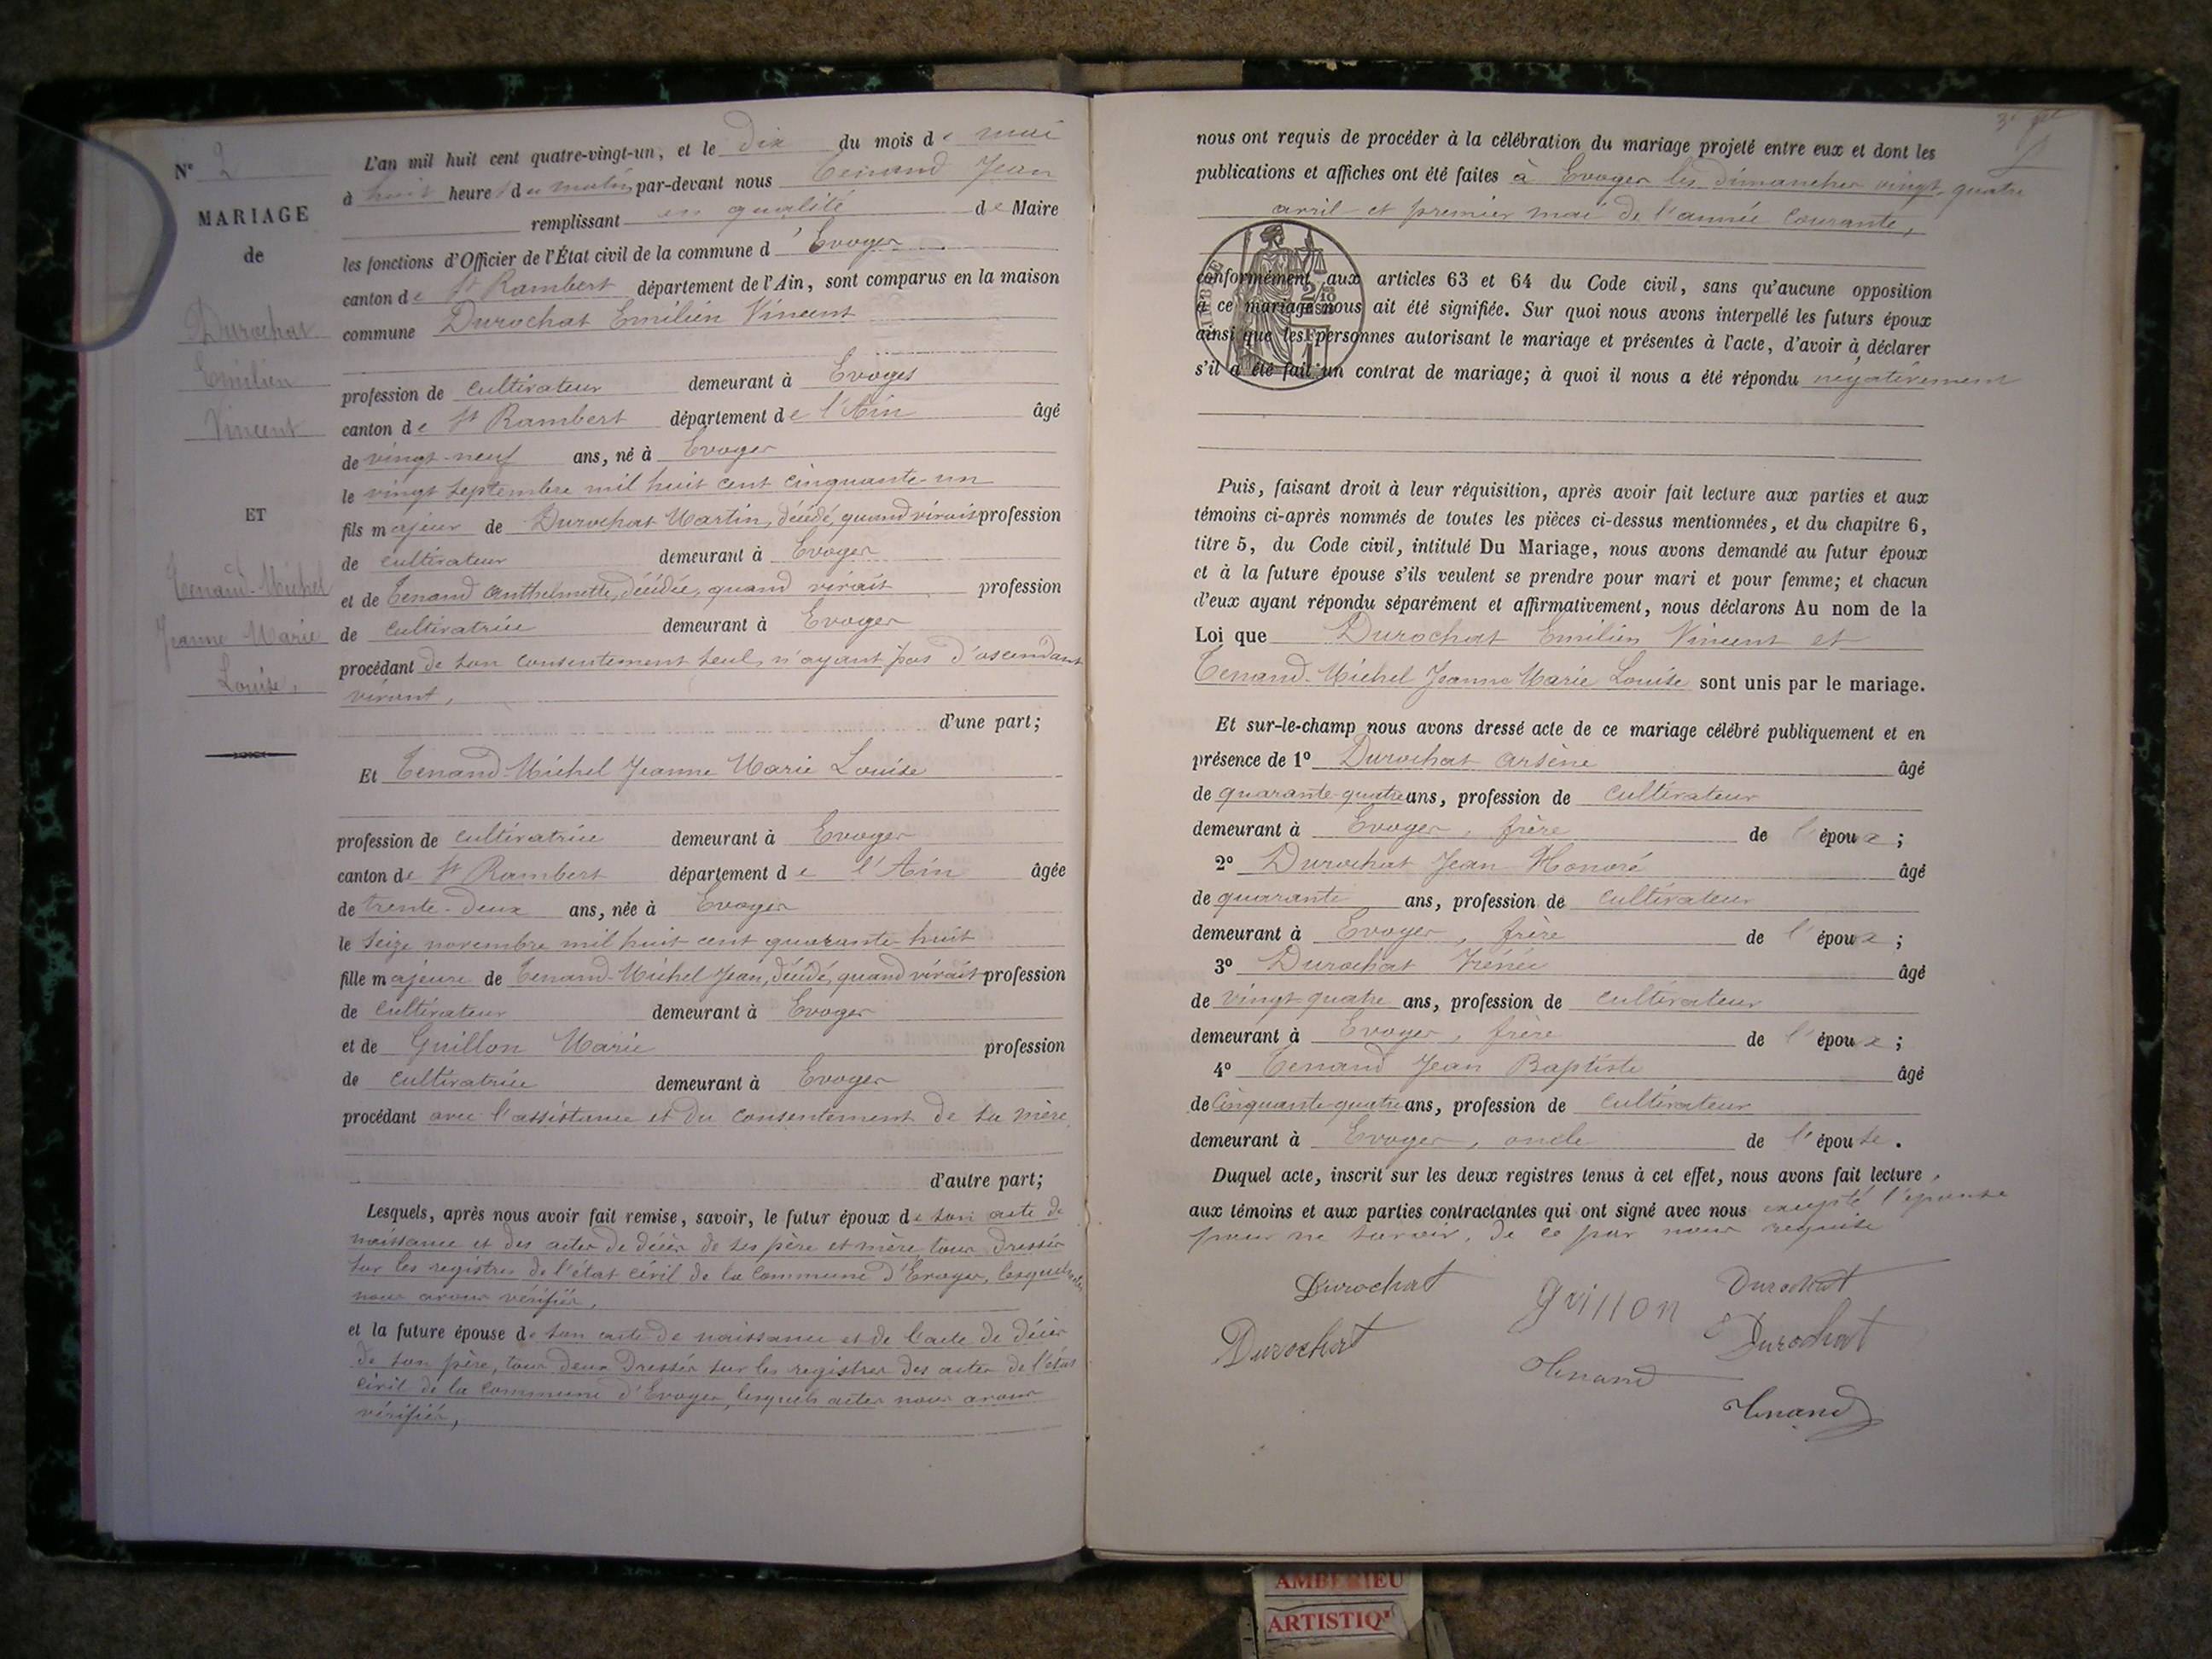 N° 2
MARIAGE
de
Durochat
Emilien
Vincent
ET
Tenand-Michel
Jeanne Marie
Louise,
L'an mil huit cent quatre-vingt-un, et le dix du mois de mai
à huit heures du matin, par-devant nous Tenand Jean
remplissant en qualité de Maire
les fonctions d'Officier de l'État civil de la commune d'Evoges
canton de St Rambert département de l'Ain, sont comparus en la maison
commune Durochat Emilien Vincent
profession de cultivateur demeurant à Evoges
canton de St Rambert département de l'Ain âgé
de vingt-neuf ans, né à Evoges
le vingt septembre mil huit cent cinquante-un
fils majeur de Durochat Martin, décédé, quand vivait profession
de cultivateur demeurant à Evoges
et de Tenand Anthelmette, décédée, quand vivait profession
de cultivatrice demeurant à Evoges
procédant de son consentement seul, n'ayant pas d'ascendant
vivant,
d'une part;
Et Tenand-Michel Jeanne Marie Louise
profession de cultivatrice demeurant à Evoges
canton de St Rambert département de l'Ain âgée
de trente-deux ans, née à Evoges
le seize novembre mil huit cent quarante-huit
fille majeure de Tenand-Michel Jean, décédé, quand vivait profession
de cultivateur demeurant à Evoges
et de Guillon Marie profession
de cultivatrice demeurant à Evoges
procédant avec l'assistance et du consentement de sa mère,
d'autre part;
Lesquels, après nous avoir fait remise, savoir, le futur époux de son acte de
naissance et des actes de décès de ses père et mère, tous dressés
sur les registres de l'état civil de la commune d'Evoges, lesquels
nous avons vérifiés,
et la future épouse de son acte de naissance et de l'acte de décès
de son père, tous deux dressés sur les registres des actes de l'état
civil de la commune d'Evoges, lesquels actes nous avons
vérifiés,
nous ont requis de procéder à la célébration du mariage projeté entre eux et dont les
publications et affiches ont été faites à Evoges les dimanches vingt-quatre
avril et premier mai de l'année courante,
conformément aux articles 63 et 64 du Code civil, sans qu'aucune opposition
à ce mariage nous ait été signifiée. Sur quoi nous avons interpellé les futurs époux
ainsi que les personnes autorisant le mariage et présentes à l'acte, d'avoir à déclarer
s'il a été fait un contrat de mariage; à quoi il nous a été répondu négativement
Puis, faisant droit à leur réquisition, après avoir fait lecture aux parties et aux
témoins ci-après nommés de toutes les pièces ci-dessus mentionnées, et du chapitre 6,
titre 5, du Code civil, intitulé Du Mariage, nous avons demandé au futur époux
et à la future épouse s'ils veulent se prendre pour mari et pour femme; et chacun
d'eux ayant répondu séparément et affirmativement, nous déclarons Au nom de la
Loi que Durochat Emilien Vincent et
Tenand-Michel Jeanne Marie Louise sont unis par le mariage.
Et sur-le-champ nous avons dressé acte de ce mariage célébré publiquement et en
présence de 1° Durochat Arsène âgé
de quarante-quatre ans, profession de cultivateur
demeurant à Evoges, frère de l'époux;
2° Durochat Jean Honoré âgé
de quarante ans, profession de cultivateur
demeurant à Evoges, frère de l'époux;
3° Durochat Irénée âgé
de vingt-quatre ans, profession de cultivateur
demeurant à Evoges, frère de l'époux;
4° Tenand Jean Baptiste âgé
de cinquante-quatre ans, profession de cultivateur
demeurant à Evoges, oncle de l'épouse.
Duquel acte, inscrit sur les deux registres tenus à cet effet, nous avons fait lecture
aux témoins et aux parties contractantes qui ont signé avec nous excepté l'épouse
pour ne savoir, de ce par nous requise
Durochat
Guillon
Durochat
Durochat
Durochat
Tenand
Tenand
AMBERIEU
ARTISTIQ